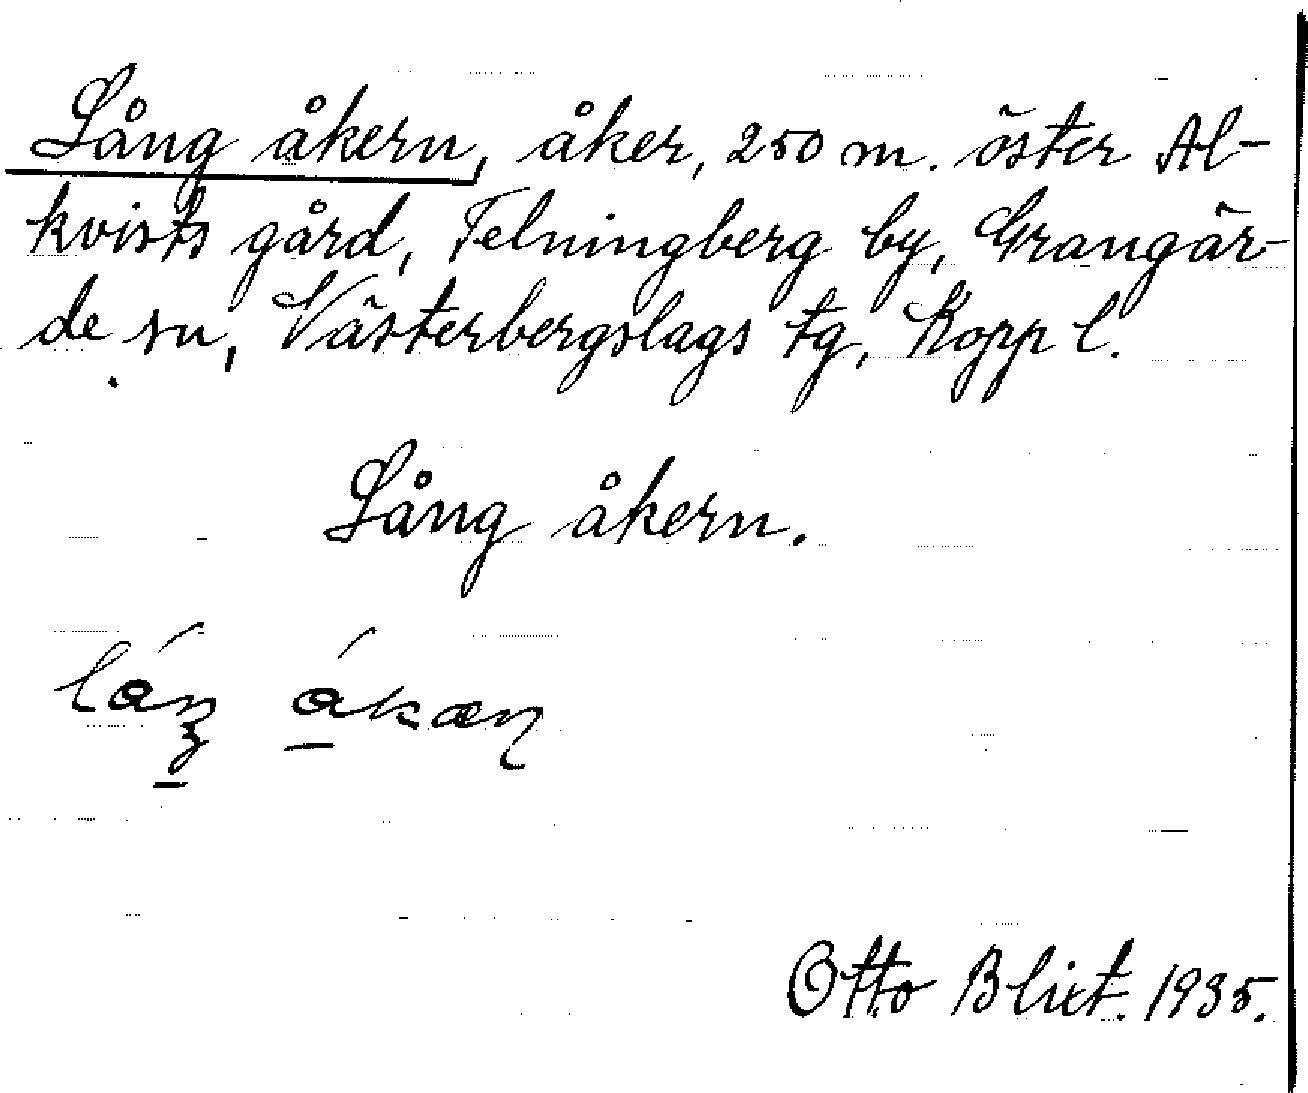 Lång åkern, åker, 250 m. öster Al-
kvists gård, Felningberg by, Grangär-
de sn, Västerbergslags tg, Kopp l.
Lång åkern.
Otto Blixt. 1935.